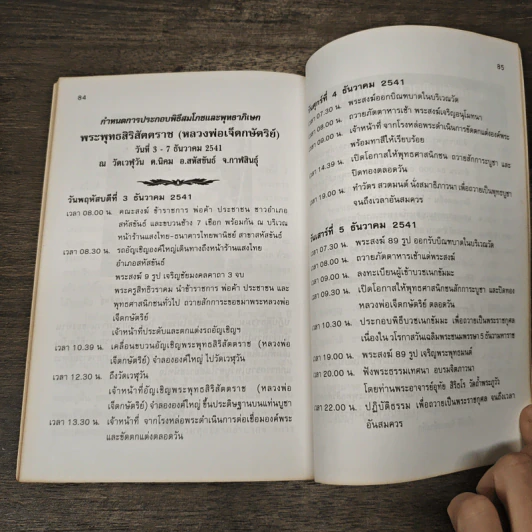 84
กำหนดการประกอบพิธีสมโภชและพุทธาภิเษก
พระพุทธสิริสัตตราช (หลวงพ่อเจ็ดกษัตริย์)
วันที่ 3 - 7 ธันวาคม 2541
ณ วัดเวฬุวัน ต.นิคม อ.สหัสขันธ์ จ.กาฬสินธุ์
วันพฤหัสบดีที่ 3 ธันวาคม 2541
เวลา 08.00 น. คณะสงฆ์ ข้าราชการ พ่อค้า ประชาชน ชาวอำเภอ
สหัสขันธ์ และขบวนช้าง 7 เชือก พร้อมกัน ณ บริเวณ
หน้าร้านแสงไทย-ธนาคารไทยพาณิชย์ สาขาสหัสขันธ์
เวลา 08.30 น. รถอัญเชิญองค์ใหญ่เดินทางถึงหน้าร้านแสงไทย
อำเภอสหัสขันธ์
พระสงฆ์ 9 รูป เจริญชัยมงคลคาถา 3 จบ
พระครูสิทธิวราคม นำข้าราชการ พ่อค้า ประชาชน และ
พุทธศาสนิกชนทั่วไป ถวายสักการะขอขมาพระหลวงพ่อ
เจ็ดกษัตริย์
เจ้าหน้าที่ประดับและตกแต่งรถอัญเชิญฯ
เวลา 10.39 น. เคลื่อนขบวนอัญเชิญพระพุทธสิริสัตตราช (หลวงพ่อ
เจ็ดกษัตริย์) จำลององค์ใหญ่ ไปวัดเวฬุวัน
เวลา 12.30 น. ถึงวัดเวฬุวัน
เจ้าหน้าที่อัญเชิญพระพุทธสิริสัตตราช (หลวงพ่อ
เจ็ดกษัตริย์) จำลององค์ใหญ่ ขึ้นประดิษฐานบนแท่นบูชา
เวลา 13.30 น. เจ้าหน้าที่ จากโรงหล่อพระดำเนินการต่อเชื่อมองค์พระ
และขัดตกแต่งตลอดวัน
85
วันศุกร์ที่ 4 ธันวาคม 2541
เวลา 07.30 น. พระสงฆ์ออกบิณฑบาตในบริเวณวัด
เวลา 08.00 น. ถวายภัตตาหารเช้า พระสงฆ์เจริญอนุโมทนา
เวลา 09.00 น. เจ้าหน้าที่ จากโรงหล่อพระดำเนินการขัดตกแต่งองค์พระ
พร้อมทาสีให้เรียบร้อย
เวลา 14.39 น. เปิดโอกาสให้พุทธศาสนิกชน ถวายสักการะบูชา และ
ปิดทองตลอดวัน
เวลา 19.00 น. ทำวัตร สวดมนต์ นั่งสมาธิภาวนา เพื่อถวายเป็นพุทธบูชา
จนถึงเวลาอันสมควร
วันเสาร์ที่ 5 ธันวาคม 2541
เวลา 07.30 น. พระสงฆ์ 89 รูป ออกรับบิณฑบาตในบริเวณวัด
เวลา 08.00 น. ถวายภัตตาหารเช้าแด่พระสงฆ์
เวลา 09.00 น. ลงทะเบียนผู้เข้าบวชเนกขัมมะ
เวลา 09.30 น. เปิดโอกาสให้พุทธศาสนิกชนสักการะบูชา และปิดทอง
หลวงพ่อเจ็ดกษัตริย์ ตลอดวัน
เวลา 10.39 น. ประกอบพิธีบวชเนกขัมมะ เพื่อถวายเป็นพระราชกุศล
เนื่องใน วโรกาสวันเฉลิมพระชนมพรรษา 5 ธันวามหาราช
เวลา 19.00 น. พระสงฆ์ 89 รูป เจริญพระพุทธมนต์
เวลา 20.00 น. ฟังพระธรรมเทศนา อบรมจิตภาวนา
โดยท่านพระอาจารย์อุทัย สิริธโร วัดถ้ำพระภูวัว
เวลา 22.00 น. ปฏิบัติธรรม เพื่อถวายเป็นพระราชกุศล จนถึงเวลา
อันสมควร